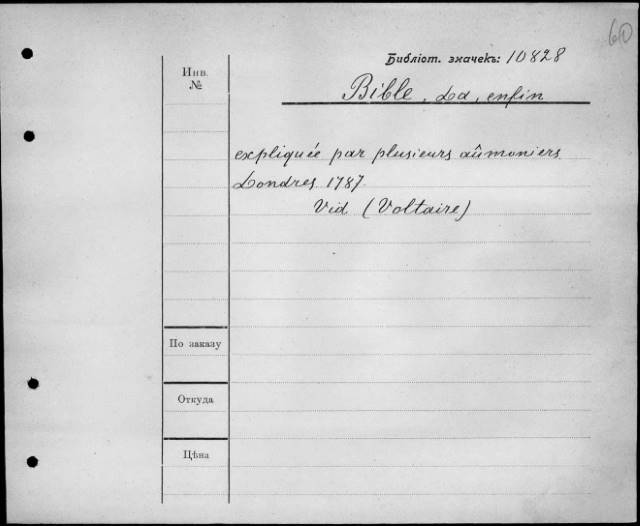 60
Библіот. значекъ: 10828
Инв.
№
Bible, La, enfin
expliquée par plusieurs aûmoniers
Londres 1787.
Vid (Voltaire)
По заказу
Откуда
Цѣна